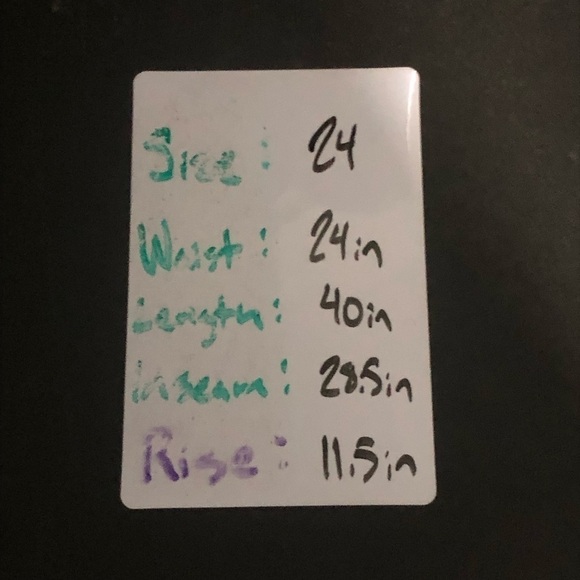 Size: 24
Waist: 24in
Length: 40in
inseam: 28.5in
Rise: 11.5in